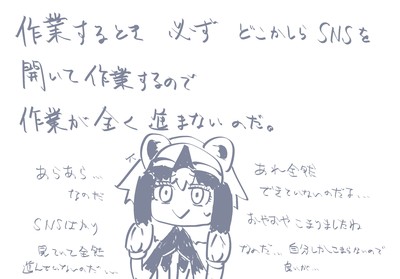 作業するとき 必ず どこかしら SNSを
開いて作業するので
作業が全く進まないのだ。
あらあら…
なのだ
SNSばかり
見ていて全然
進んでいないのだ…
あれ全然
できていないのだよ…
おやおやこまりましたね
なのだ… 自分しかこまらないので
良いが…